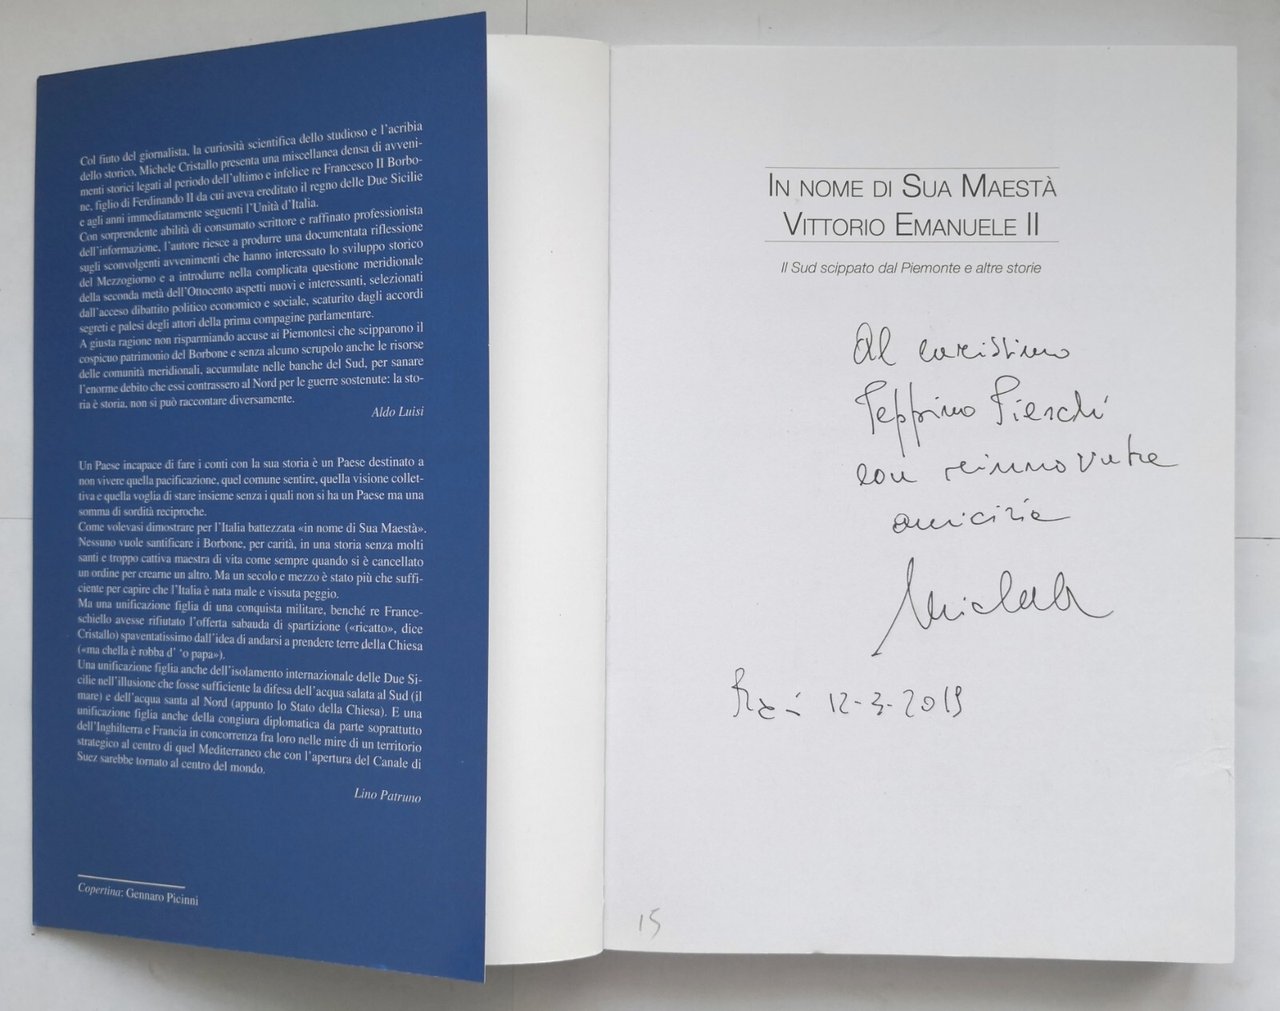 Col fiuto del giornalista, la curiosità scientifica dello studioso e l'acribia
dello storico, Michele Cristallo presenta una miscellanea densa di avveni-
menti storici legati al periodo dell'ultimo e infelice re Francesco II Borbo-
ne, figlio di Ferdinando II da cui aveva ereditato il regno delle Due Sicilie
e agli anni immediatamente seguenti l'Unità d'Italia.
Con sorprendente abilità di consumato scrittore e raffinato professionista
dell'informazione, l'autore riesce a produrre una documentata riflessione
sugli sconvolgenti avvenimenti che hanno interessato lo sviluppo storico
del Mezzogiorno e a introdurre nella complicata questione meridionale
della seconda metà dell'Ottocento aspetti nuovi e interessanti, selezionati
dall'acceso dibattito politico economico e sociale, scaturito dagli accordi
segreti e palesi degli attori della prima compagine parlamentare.
A giusta ragione non risparmiando accuse ai Piemontesi che scipparono il
cospicuo patrimonio del Borbone e senza alcuno scrupolo anche le risorse
delle comunità meridionali, accumulate nelle banche del Sud, per sanare
l'enorme debito che essi contrassero al Nord per le guerre sostenute: la sto-
ria è storia, non si può raccontare diversamente.
Aldo Luisi
Un Paese incapace di fare i conti con la sua storia è un Paese destinato a
non vivere quella pacificazione, quel comune sentire, quella visione collet-
tiva e quella voglia di stare insieme senza i quali non si ha un Paese ma una
somma di sordità reciproche.
Come volevasi dimostrare per l'Italia battezzata «in nome di Sua Maestà».
Nessuno vuole santificare i Borbone, per carità, in una storia senza molti
santi e troppo cattiva maestra di vita come sempre quando si è cancellato
un ordine per crearne un altro. Ma un secolo e mezzo è stato più che suffi-
ciente per capire che l'Italia è nata male e vissuta peggio.
Ma una unificazione figlia di una conquista militare, benché re France-
schiello avesse rifiutato l'offerta sabauda di spartizione («ricatto», dice
Cristallo) spaventatissimo dall'idea di andarsi a prendere terre della Chiesa
(«ma chella è robba d' 'o papa»).
Una unificazione figlia anche dell'isolamento internazionale delle Due Si-
cilie nell'illusione che fosse sufficiente la difesa dell'acqua salata al Sud (il
mare) e dell'acqua santa al Nord (appunto lo Stato della Chiesa). E una
unificazione figlia anche della congiura diplomatica da parte soprattutto
dell'Inghilterra e Francia in concorrenza fra loro nelle mire di un territorio
strategico al centro di quel Mediterraneo che con l'apertura del Canale di
Suez sarebbe tornato al centro del mondo.
Lino Patruno
Copertina: Gennaro Picinni
IN NOME DI SUA MAESTÀ
VITTORIO EMANUELE II
Il Sud scippato dal Piemonte e altre storie
Al carissimo
Peppino
con rinnovata
amicizia
Michele
12-3-2019
15